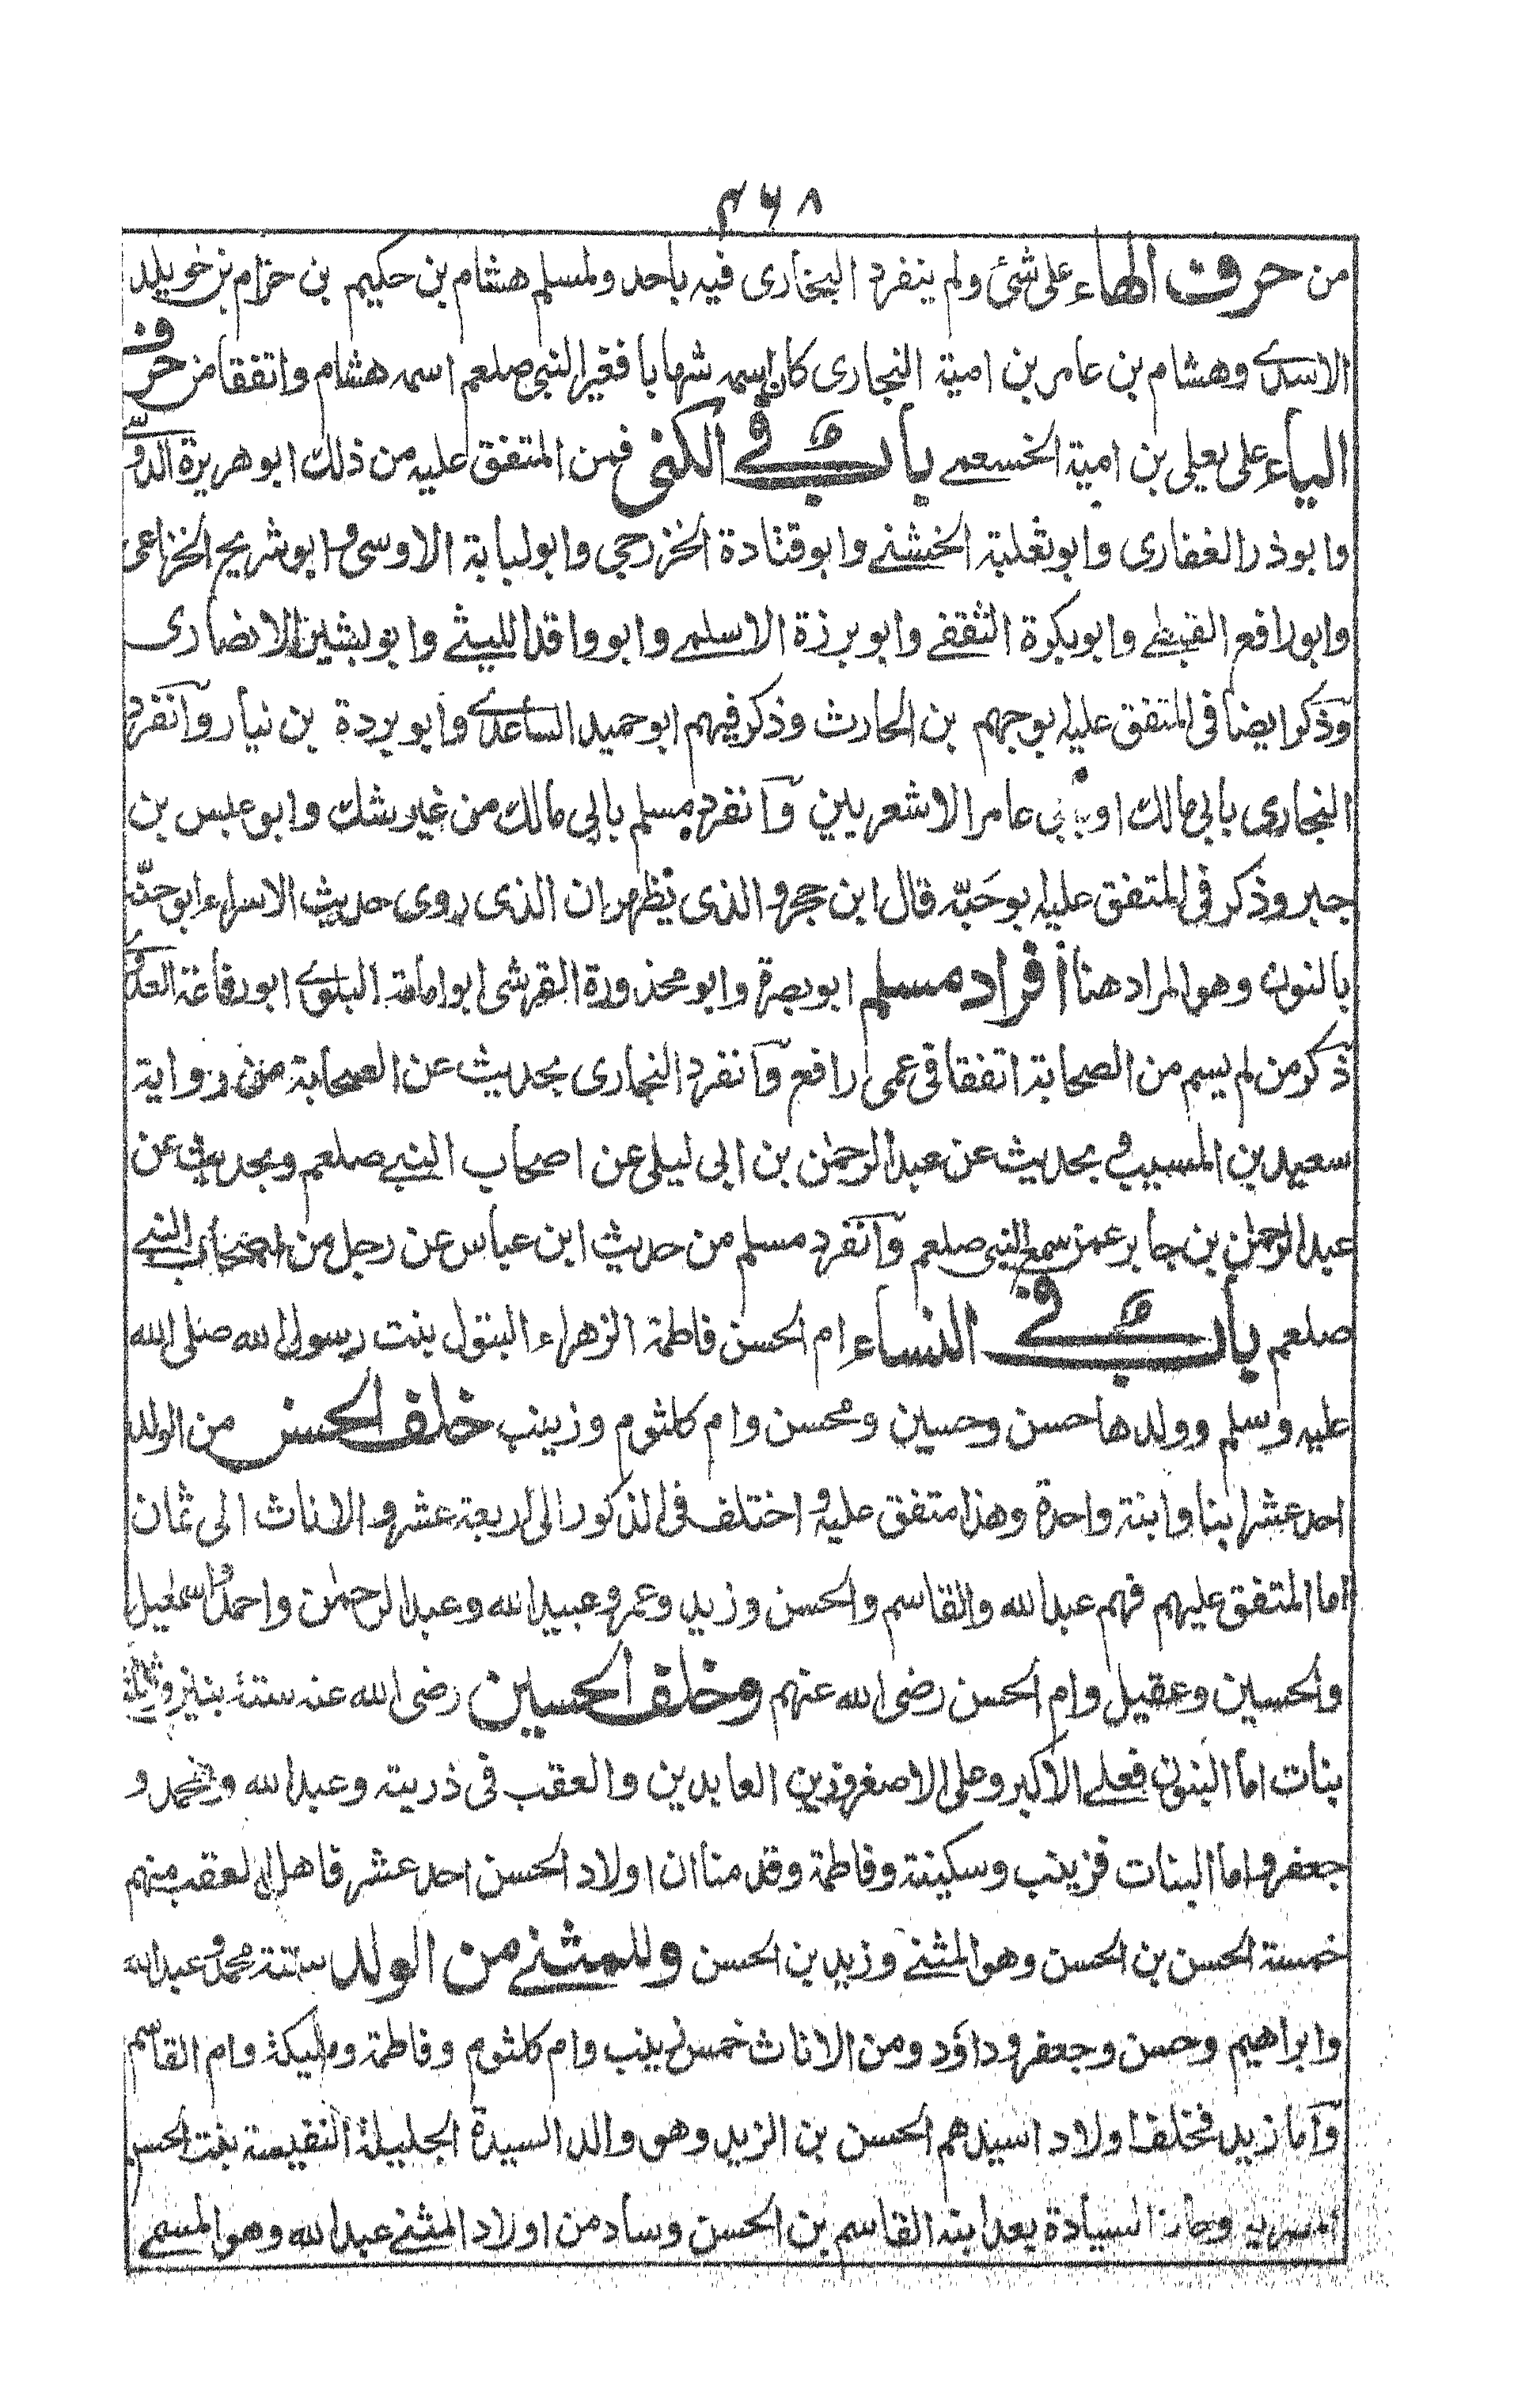 ٤٦٨
من حرف الهاء على شئ ولم ينفرد البخارى فيه باحد ولمسلم هشام بن حكيم بن حزام بن خويلد
الاسدے وهشام بن عامر بن امية النجارى كان اسمه شهابا فغير النبى صلعم اسمه هشام واتفقا من حرف
الياء على يعلى بن امية الخسعمے باب فے الكنى فمن المتفق عليه من ذلك ابو هريرة الدوسے
وابوذر الغفارى وابو ثعلبة الخشنے وابو قتادة الخزرجى وابو لبابة الاوسى وابو شريح الخزاعى
وابو رافع القبطے وابو بكرة الثقفے وابو برزة الاسلمے وابو واقد الليثے وابو بشير الانصارى
وذكر ايضا فى المتفق عليه بو جهم بن الحارث وذكر فيهم ابو حميد الساعدے وابو بردة بن نيار وانفرد
البخارى بابى مالك او بابى عامر الاشعريين وانفرد مسلم بابى مالك من غير شك وابو عبس بن
جبر وذكر فى المتفق عليه بو حَبّه قال ابن حجر والذى يظهر ان الذى روى حديث الاسراء ابو حنّه
بالنون وهو المراد هنا أفراد مسلم ابو بصرة وابو محذورة القرشى ابو امامة البلوے ابو رفاعة العدوے
ذكر من لم يسم من الصحابة اتفقا فى عمى رافع وانفرد البخارى بحديث عن الصحابة من رواية
سعيد بن المسيب وبحديث عن عبد الرحمٰن بن ابى ليلى عن اصحاب النبے صلعم وبحديث عن
عبد الرحمٰن بن جابر عمن سمع النبى صلعم وانفرد مسلم من حديث ابن عباس عن رجل من اصحاب النبے
صلعم باب فے النساء ام الحسن فاطمة الزهراء البتول بنت رسول الله صلى الله
عليه وسلم وولدها حسن وحسين ومحسن وام كلثوم وزينب خلف الحسن من الولد
احد عشر ابنا وابنة واحدة وهذا متفق عليه واختلف فى الذكور الى اربعة عشر والاناث الى ثمان
اما المتفق عليهم فهم عبد الله والقاسم والحسن وزيد وعمرو وعبيد الله وعبد الرحمٰن واحمد واسمعيل
والحسين وعقيل وام الحسن رضى الله عنهم وخلف الحسين رضى الله عنه ستة بنين وثلث
بنات اما البنون فعلے الاكبر وعلى الاصغر وزين العابدين والعقب فى ذريته وعبد الله ومحمد و
جعفر واما البنات فزينب وسكينة وفاطمة وقدمنا ان اولاد الحسن احد عشر فاهل العقب منهم
خمسة الحسن بن الحسن وهو المثنے وزيد بن الحسن وللمثنے من الولد ستة محمد وعبد الله
وابراهيم وحسن وجعفر وداؤد ومن الاناث خمس زينب وام كلثوم وفاطمة ومليكة وام القاسم
واما زيد فخلف اولاد اسيدهم الحسن بن الزيد وهو والد السيدة الجليلة النفيسة بنت الحسن
وحاز السيادة بعد ابنه القاسم بن الحسن وساد من اولاد المثنے عبد الله وهو المسمے